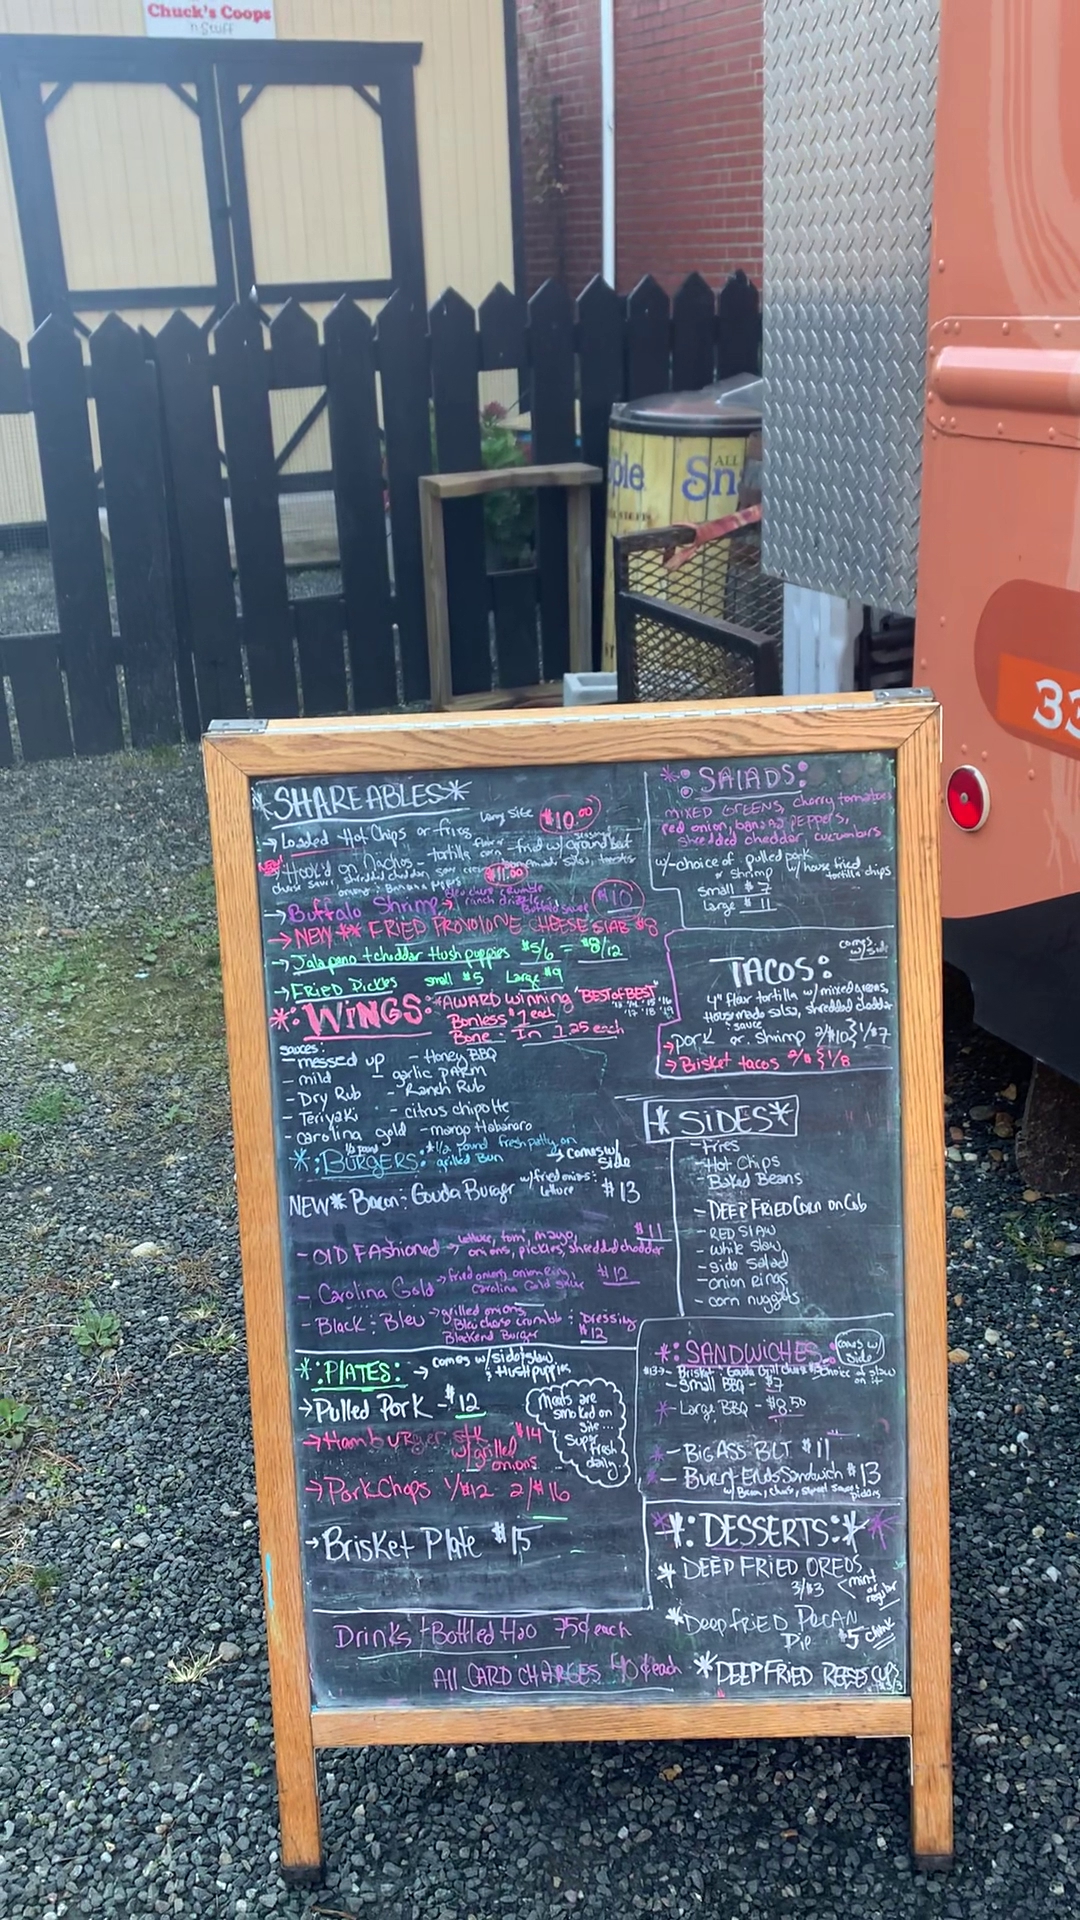 Chuck's Coops
'n Stuff
ple
ALL
Sn
33
*SHAREABLES*
Large Size $10.00
→ Loaded Hot Chips or fries
NEW! Hook'd on Nachos - tortilla fried w/ ground beef
cheese sauce, shredded cheddar, sour cream, homemade salsa, tomatoes
onions : Banana peppers $11.00
→ Buffalo Shrimp → bleu cheese crumble ranch drizzle Buffalo sauce $10
→ NEW ** FRIED PROVOLONE CHEESE SLAB $8
→ Jalapano + cheddar Hushpuppies $5/6 = $8/12
→ FRIED Pickles small $5 Large $9
*:WINGS:* AWARD winning "BEST of BEST"
Bonless $1 each
Bone - In 1.25 each
sauces:
- messed up - Honey BBQ
- mild - garlic PARM
- Dry Rub - Ranch Rub
- Teriyaki - citrus chipotle
- carolina gold - mango Habanaro
*:BURGERS:* *1/2 pound fresh patty on
grilled Bun → comes w/ side
NEW* Bacon : Gouda Burger w/ fried onions : lettuce $13
- OLD FAshioned → lettuce, tom, mayo, $11
onions, pickles, shredded cheddar
- Carolina Gold → fried onions, onion ring, $12
Carolina Gold sauce
- Black : Bleu → grilled onions,
Bleu cheese crumble : Dressing
Blackend Burger $12
*:PLATES: → comes w/ side, slaw
: Hushpuppies
→ Pulled Pork - $12
→ Hamburger stk $14
w/ grilled
onions
→ PorkChops 1/$12 2/$16
→ Brisket Plate $15
Meats are
smoked on
site...
Super
fresh
daily
Drinks + Bottled H2O 75¢ each
All CARD CHARGES 40¢ each
*:SALADS:
MIXED GREENS, cherry tomatoes
red onion, banana peppers,
shredded cheddar, cucumbers
w/ - choice of pulled pork
or Shrimp w/ house fried
tortilla chips
small $7
Large $11
comes w/ side
TACOS:
4" flour tortilla w/ mixed greens,
House made salsa, shredded cheddar
sauce
→ pork or shrimp 2/$10 } 1/$7
→ Brisket tacos } 1/8
*SIDES*
- Fries
- Hot Chips
- Baked Beans
- DEEP FRIED Corn on Cob
- RED SLAW
- white slaw
- side salad
- onion rings
- corn nuggets
*:SANDWICHES: comes w/ Side
$13 - Brisket : Gouda Grill cheese choice of slaw
on it
- Small BBQ - $7
*- Large BBQ - $8.50
*- BIG ASS BLT $11
*- Burnt Ends Sandwich $13
*:DESSERTS:*
* DEEP FRIED OREOS
3/$3 mint or regular
* Deep fried PECAN
Pie $5 chunk
* DEEP FRIED REESE CUPS